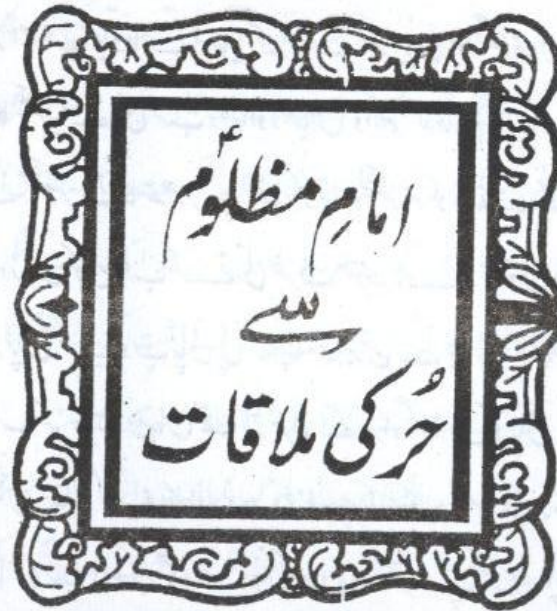 امامِ مظلومؑ
سے
حُر کی ملاقات